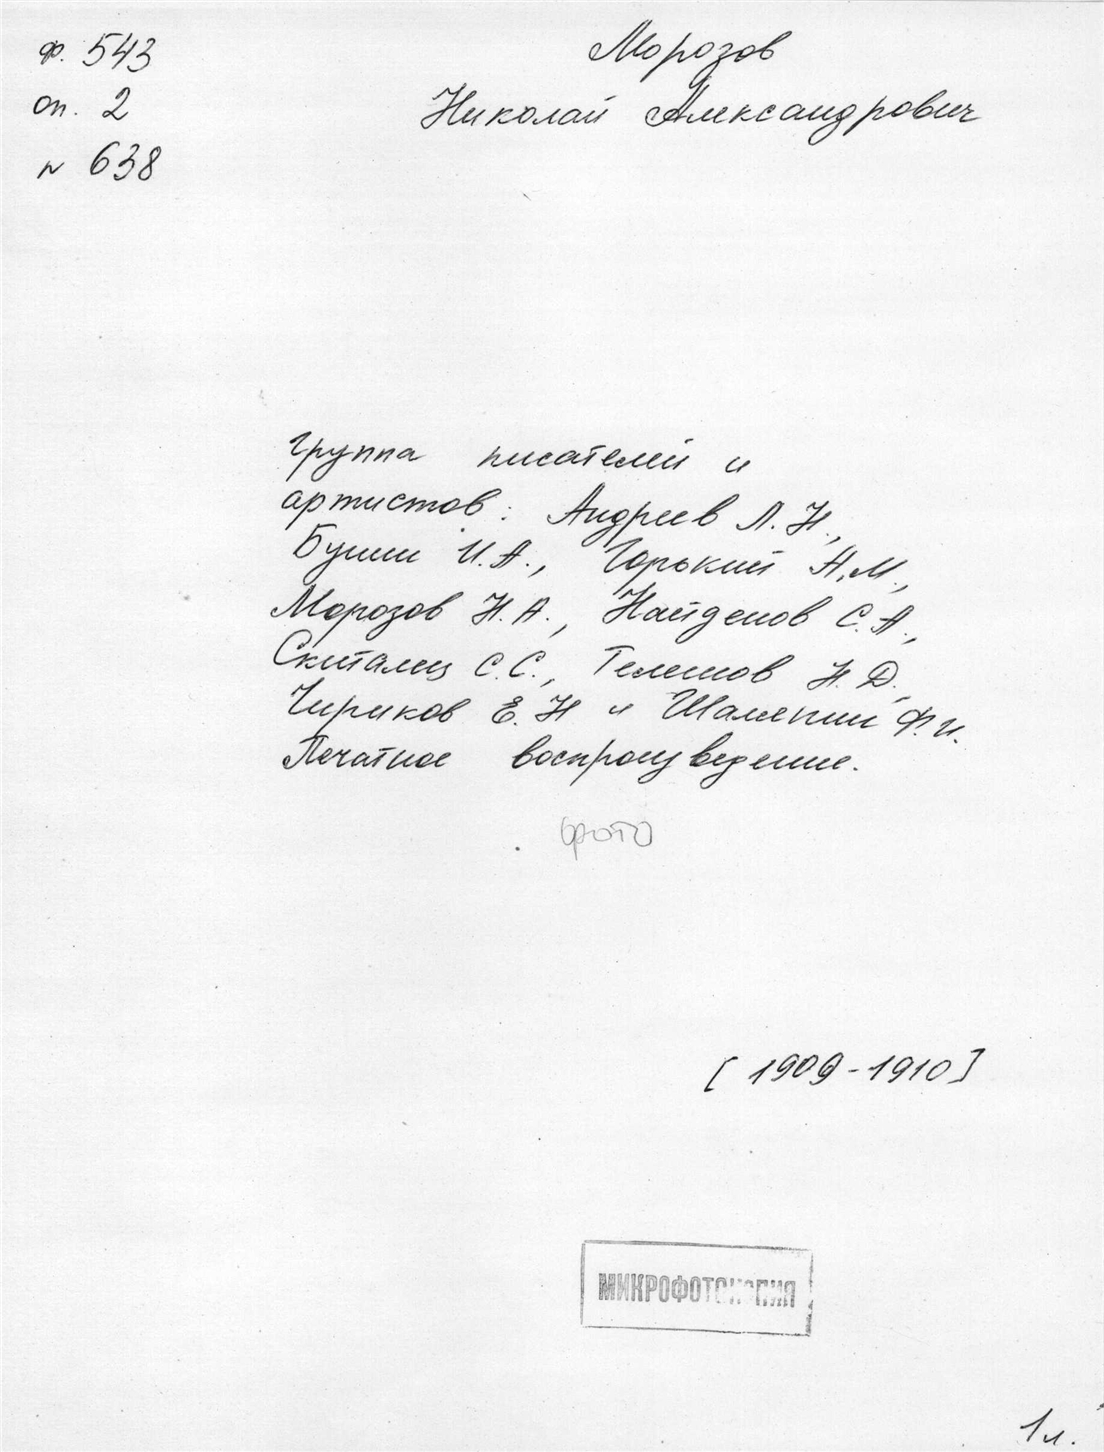 ф. 543
оп. 2
N 638
Морозов
Николай Александрович
Группа писателей и
артистов: Андреев Л. Н.,
Бунин И. А., Горький А. М.,
Морозов Н. А., Найденов С. А.,
Скиталец С. С., Телешов Н. Д.,
Чириков Е. Н и Шаляпин Ф. И.
Печатное воспроизведение.
фото
[1909-1910]
МИКРОФОТОКОПИЯ
1 л.